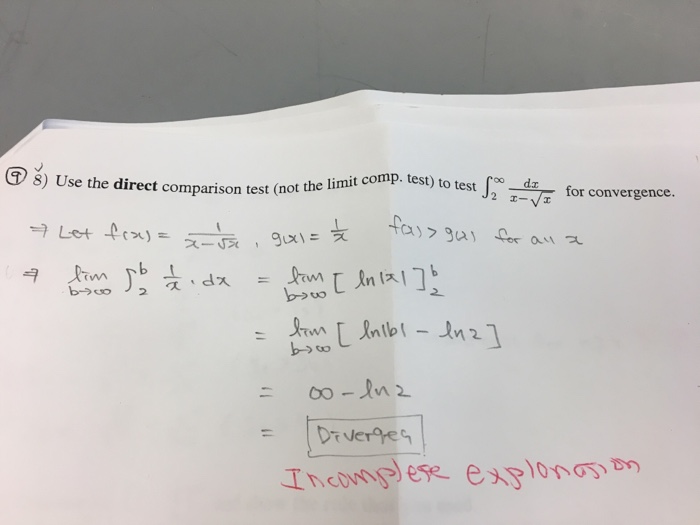 ⑨ ✓ 8) Use the direct comparison test (not the limit comp. test) to test ∫₂^∞ dx/(x−√x) for convergence.
⇒ Let f(x) = 1/(x−√x) , g(x) = 1/x f(x) > g(x) for all x
⇒ lim b→∞ ∫₂^b 1/x · dx = lim b→∞ [ ln|x| ]₂^b
= lim b→∞ [ ln|b| − ln2 ]
= ∞ − ln2
= Diverges
Incomplete explanation